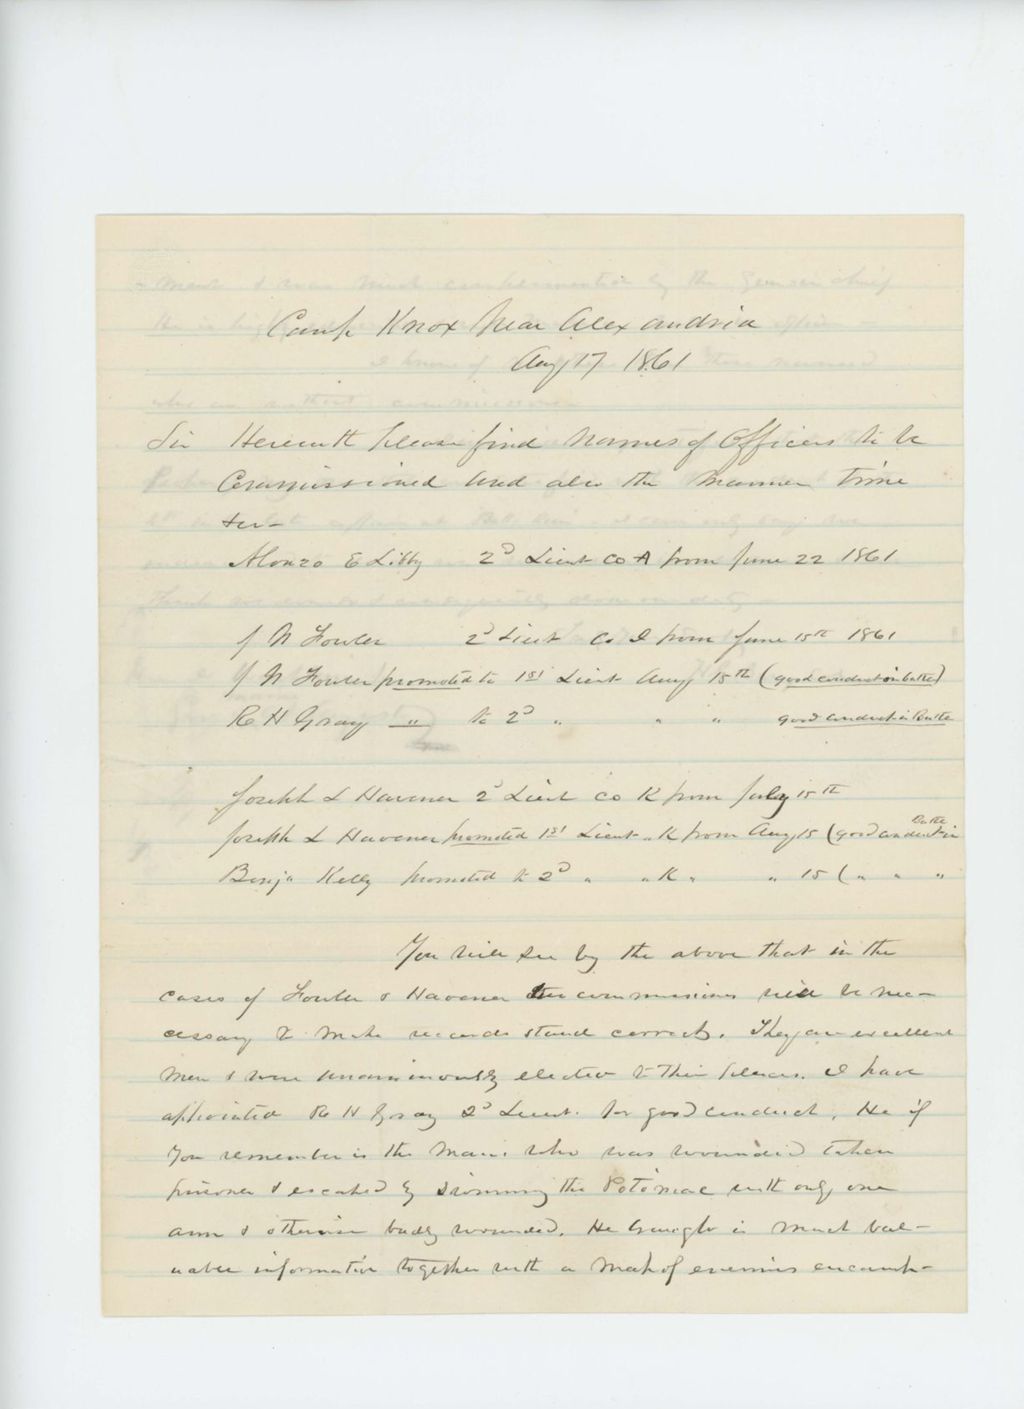 Camp Knox Near Alexandria
Aug 17 1861
Sir Herewith please find Names of Officers to be
Commissioned and also the Manner time
&c—
Alonzo E Libby 2d Lieut Co A from June 22 1861
J N Fowler 2d Lieut Co I from June 15th 1861
J N Fowler promoted to 1st Lieut Aug 15th (good conduct in battle)
R H Gray " to 2d " " " good conduct in Battle
Joseph L Havener 2d Lieut Co K from July 15th
Joseph L Havener promoted 1st Lieut " K from Aug 15 (good conduct in Battle
Benja Kelly promoted to 2d " " K " " 15 ( " " "
You will see by the above that in the
cases of Fowler & Havener two commissions will be nec-
essary to make records stand correct. They are excellent
Men & were unanimously elected to their places. I have
appointed R H Gray 2d Lieut. for good conduct. He if
You remember is the Man who was wounded taken
prisoner & escaped by swimming the Potomac with only one
arm & otherwise badly wounded. He brought in much val-
uable information together with a Map of enemies encamp-